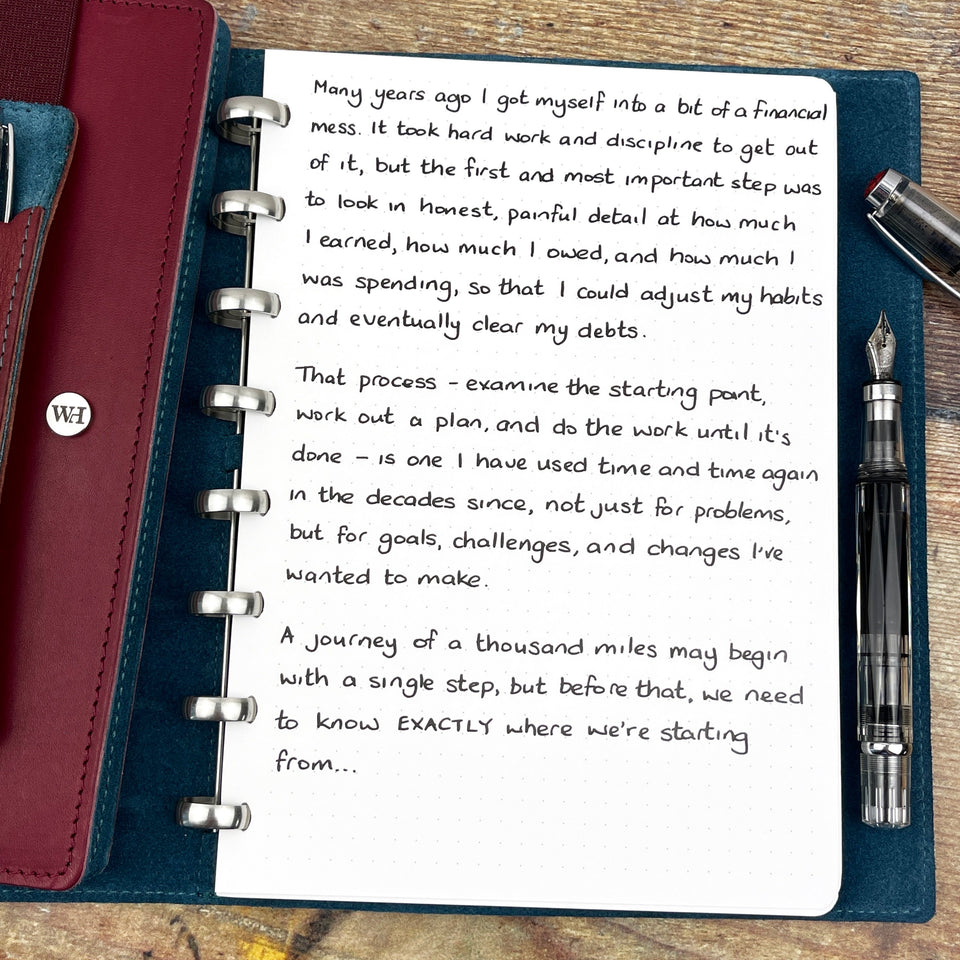 Many years ago I got myself into a bit of a financial
mess. It took hard work and discipline to get out
of it, but the first and most important step was
to look in honest, painful detail at how much
I earned, how much I owed, and how much I
was spending, so that I could adjust my habits
and eventually clear my debts.
That process - examine the starting point,
work out a plan, and do the work until it's
done - is one I have used time and time again
in the decades since, not just for problems,
but for goals, challenges, and changes I've
wanted to make.
A journey of a thousand miles may begin
with a single step, but before that, we need
to know EXACTLY where we're starting
from...
WH